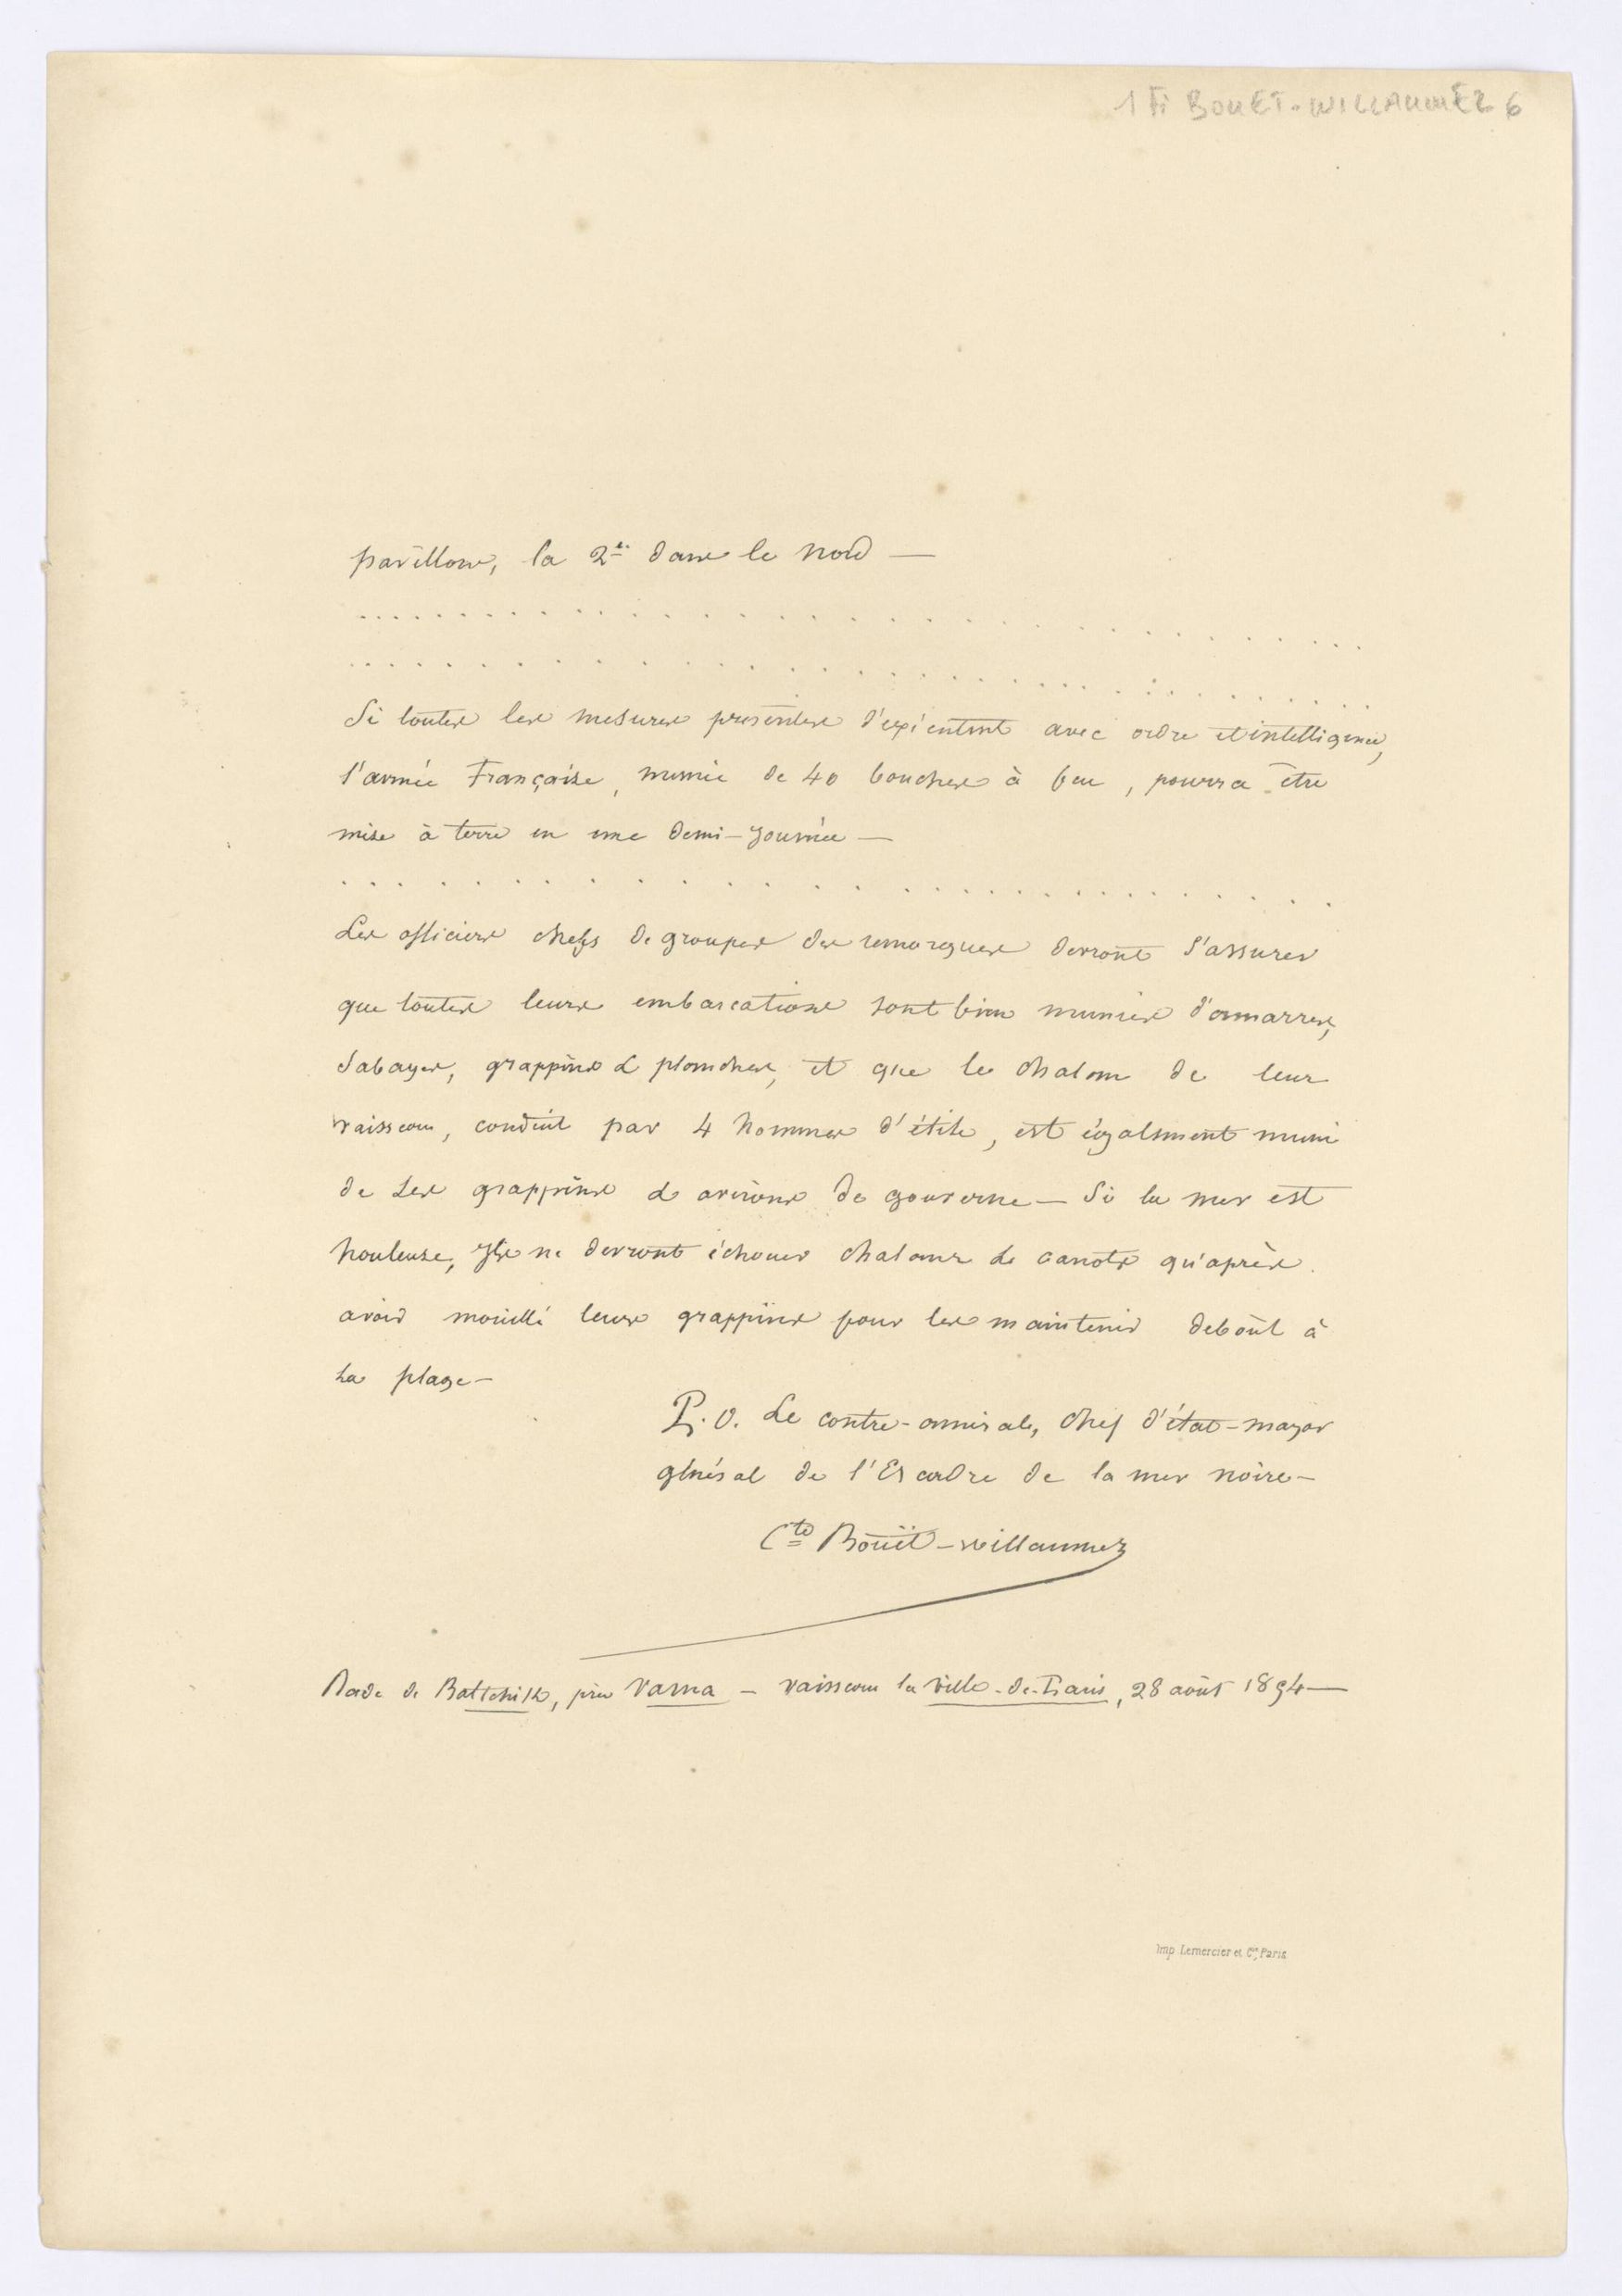 1 Fi BOUET-WILLAUMEZ 6
pavillons, la 2e dans le nord —
Si toutes les mesures présentes s'exécutent avec ordre et intelligence,
l'armée Française, munie de 40 bouches à feu, pourra être
mise à terre en une demi-journée —
Les officiers chefs de groupes des remorques devront s'assurer
que toutes leurs embarcations sont bien munies d'amarres,
sabayes, grappins & planches, et que le chalan de leur
vaisseau, conduit par 4 hommes d'élite, est également muni
de ses grappins & avirons de gouverne — Si la mer est
houleuse, ils ne devront échouer chalans & canots qu'après
avoir mouillé leurs grappins pour les maintenir debout à
la plage —
P. O. Le contre-amiral, chef d'état-major
général de l'Escadre de la mer noire —
Cte Bouët-willaumez
Rade de Baltchik, près Varna — vaisseau la ville-de-Paris, 28 août 1854 —
Imp. Lemercier et Cie, Paris